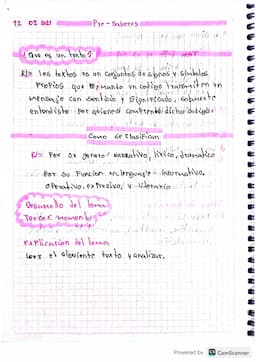 12 02 2021 Pre-Saberes
¿Que es un texto?
R/= los textos es un conjuntos de signos y simbolos
Propios que formando un codigo transmiten un
mensaje con sentido y significado, solamente
entendiste por quienes comprenden dicho codigo.
Como se clasifican
R/= Por su genero: narrativo, lirico, dramatico
Por su Funcion en lenguaje: informativo,
operativo, expresivo, y literario
Desarrollo del tema
Tercer momento
explicacion del tema
leer el siguiente texto y analizar.
Powered by CS CamScanner